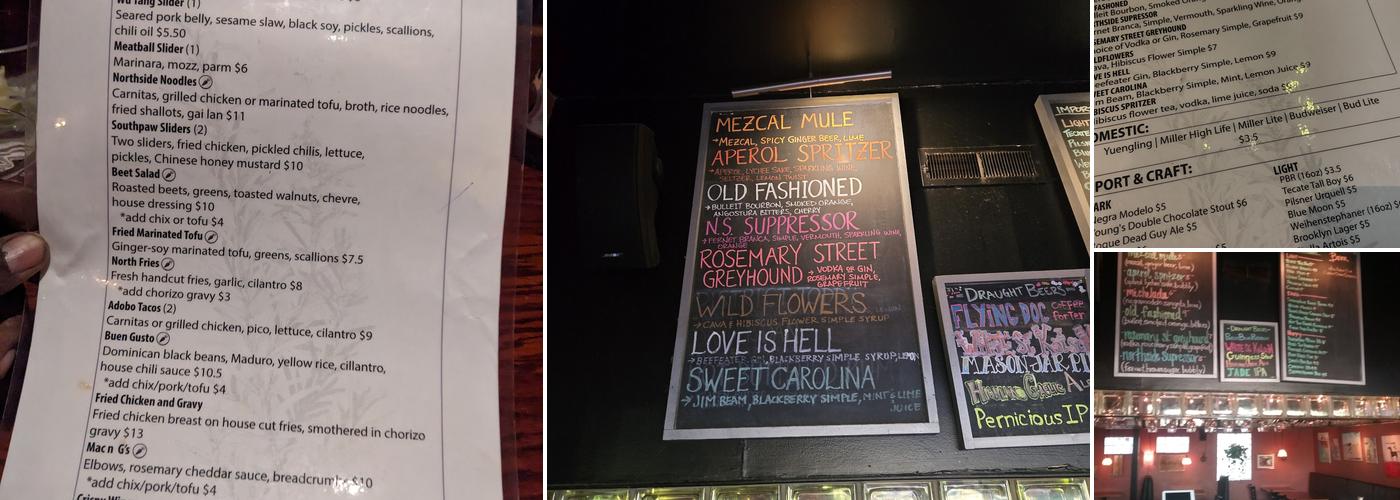 Wu Tang Slider (1)
Seared pork belly, sesame slaw, black soy, pickles, scallions,
chili oil $5.50
Meatball Slider (1)
Marinara, mozz, parm $6
Northside Noodles
Carnitas, grilled chicken or marinated tofu, broth, rice noodles,
fried shallots, gai lan $11
Southpaw Sliders (2)
Two sliders, fried chicken, pickled chilis, lettuce,
pickles, Chinese honey mustard $10
Beet Salad
Roasted beets, greens, toasted walnuts, chevre,
house dressing $10
*add chix or tofu $4
Fried Marinated Tofu
Ginger-soy marinated tofu, greens, scallions $7.5
North Fries
Fresh handcut fries, garlic, cilantro $8
*add chorizo gravy $3
Adobo Tacos (2)
Carnitas or grilled chicken, pico, lettuce, cilantro $9
Buen Gusto
Dominican black beans, Maduro, yellow rice, cilantro,
house chili sauce $10.5
*add chix/pork/tofu $4
Fried Chicken and Gravy
Fried chicken breast on house cut fries, smothered in chorizo
gravy $13
Mac n G's
Elbows, rosemary cheddar sauce, breadcrumbs $10
*add chix/pork/tofu $4
MEZCAL MULE
→ MEZCAL, SPICY GINGER BEER, LIME
APEROL SPRITZER
→ APEROL, LYCHEE SAKE, SPARKLING WINE,
SELTZER, LEMON TWIST
OLD FASHIONED
→ BULLEIT BOURBON, SMOKED ORANGE,
ANGOSTURA BITTERS, CHERRY
N.S. SUPPRESSOR
→ FERNET BRANCA, SIMPLE, VERMOUTH, SPARKLING WINE,
ORANGE
ROSEMARY STREET
GREYHOUND → VODKA OR GIN,
ROSEMARY SIMPLE,
GRAPEFRUIT
WILD FLOWERS
→ CAVA & HIBISCUS FLOWER SIMPLE SYRUP
LOVE IS HELL
→ BEEFEATER GIN, BLACKBERRY SIMPLE SYRUP, LEMON
SWEET CAROLINA
→ JIM BEAM, BLACKBERRY SIMPLE, MINT & LIME
JUICE
IMPOR
LIGHT
TECATE
DRAUGHT BEERS
FLYING DOG COFFEE
PORTER
MASON JAR PI
Pernicious IP
FASHIONED
lleit Bourbon, Smoked Oran
THSIDE SUPRESSOR
rnet Branca, Simple, Vermouth, Sparkling Wine, Oran
SEMARY STREET GREYHOUND
hoice of Vodka or Gin, Rosemary Simple, Grapefruit $9
LDFLOWERS
ava, Hibiscus Flower Simple $7
VE IS HELL
eefeater Gin, Blackberry Simple, Lemon $9
WEET CAROLINA
m Beam, Blackberry Simple, Mint, Lemon Juice $9
IBISCUS SPRITZER
ibiscus flower tea, vodka, lime juice, soda
OMESTIC:
Yuengling | Miller High Life | Miller Lite | Budweiser | Bud Lite
$3.5
PORT & CRAFT:
ARK
Negra Modelo $5
Young's Double Chocolate Stout $6
ogue Dead Guy Ale $5
LIGHT
PBR (16oz) $3.5
Tecate Tall Boy $6
Pilsner Urquell $5
Blue Moon $5
Weihenstephaner (16oz)
Brooklyn Lager $5
lla Artois $5
aperol spritzers
michelada
old fashioned
rosemary st greyhound
northside supressor
DRAUGHT BEERS
Guinness Stout
JADE IPA
Beer